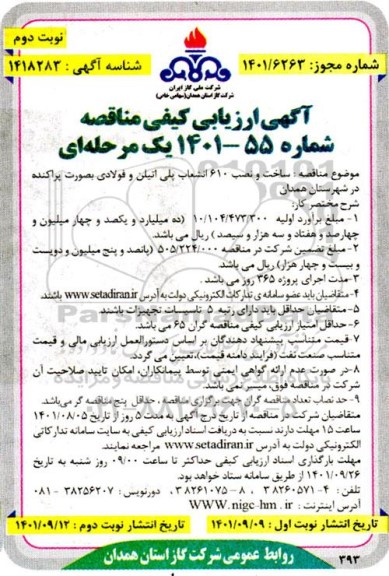 نوبت دوم
شماره مجوز: ۱۴۰۱/۶۲۶۳
شناسه آگهی: ۱۴۱۸۲۸۳
شرکت ملی گاز ایران
شرکت گاز استان همدان (سهامی خاص)
آگهی ارزیابی کیفی مناقصه
شماره ۵۵ -۱۴۰۱ یک مرحله‌ای
موضوع مناقصه : ساخت و نصب ۶۱۰ انشعاب پلی اتیلن و فولادی بصورت پراکنده
در شهرستان همدان
شرح مختصر کار:
۱- مبلغ برآورد اولیه ۱۰/۱۰۴/۴۷۳/۳۰۰ (ده میلیارد و یکصد و چهار میلیون و
چهارصد و هفتاد و سه هزار و سیصد ) ریال می باشد.
۲- مبلغ تضمین شرکت در مناقصه ۵۰۵/۲۲۴/۰۰۰ (پانصد و پنج میلیون و دویست
و بیست و چهار هزار) ریال می باشد.
۳-مدت اجرای پروژه ۳۶۵ روز می باشد .
۴- متقاضیان باید عضو سامانه ی تدارکات الکترونیکی دولت به آدرس www.setadiran.ir باشند.
۵- متقاضیان حداقل باید دارای رتبه ۵ تاسیسات تجهیزات باشند.
۶-حداقل امتیاز ارزیابی کیفی مناقصه گران ۶۵ می باشد.
۷-قیمت متناسب پیشنهاد دهندگان بر اساس دستورالعمل ارزیابی مالی و قیمت
متناسب صنعت نفت (فرآیند دامنه قیمت)،تعیین می گردد.
۸-در صورت عدم ارائه گواهی ایمنی توسط پیمانکاران، امکان تایید صلاحیت آن
شرکت در مناقصه فوق، میسر نمی باشد.
۹-حد نصاب تعداد مناقصه گران جهت برگزاری مناقصه، حداقل پنج مناقصه گر می‌باشد.
متقاضیان شرکت در مناقصه از تاریخ درج آگهی به مدت ۵ روز از تاریخ ۱۴۰۱/۰۸/۰۵
ساعت ۱۵ مهلت دارند نسبت به دریافت اسناد ارزیابی کیفی به سایت سامانه تدارکاتی
الکترونیکی دولت به آدرس www.setadiran.ir مراجعه نمایند.
مهلت بارگذاری اسناد ارزیابی کیفی حداکثر تا ساعت ۰۹/۰۰ روز شنبه به تاریخ
۱۴۰۱/۰۹/۲۶ از طریق سامانه ستاد خواهد بود.
تلفن : ۴- ۳۸۲۶۰۵۷۱ و ۸ - ۳۸۲۶۱۰۷۵ ، دورنویس : ۳۸۲۵۶۲۰۷ - ۰۸۱
آدرس اینترنت : WWW. nigc-hm . ir
تاریخ انتشار نوبت اول : ۱۴۰۱/۰۹/۰۹
تاریخ انتشار نوبت دوم : ۱۴۰۱/۰۹/۱۲
روابط عمومی شرکت گاز استان همدان
۳۹۳